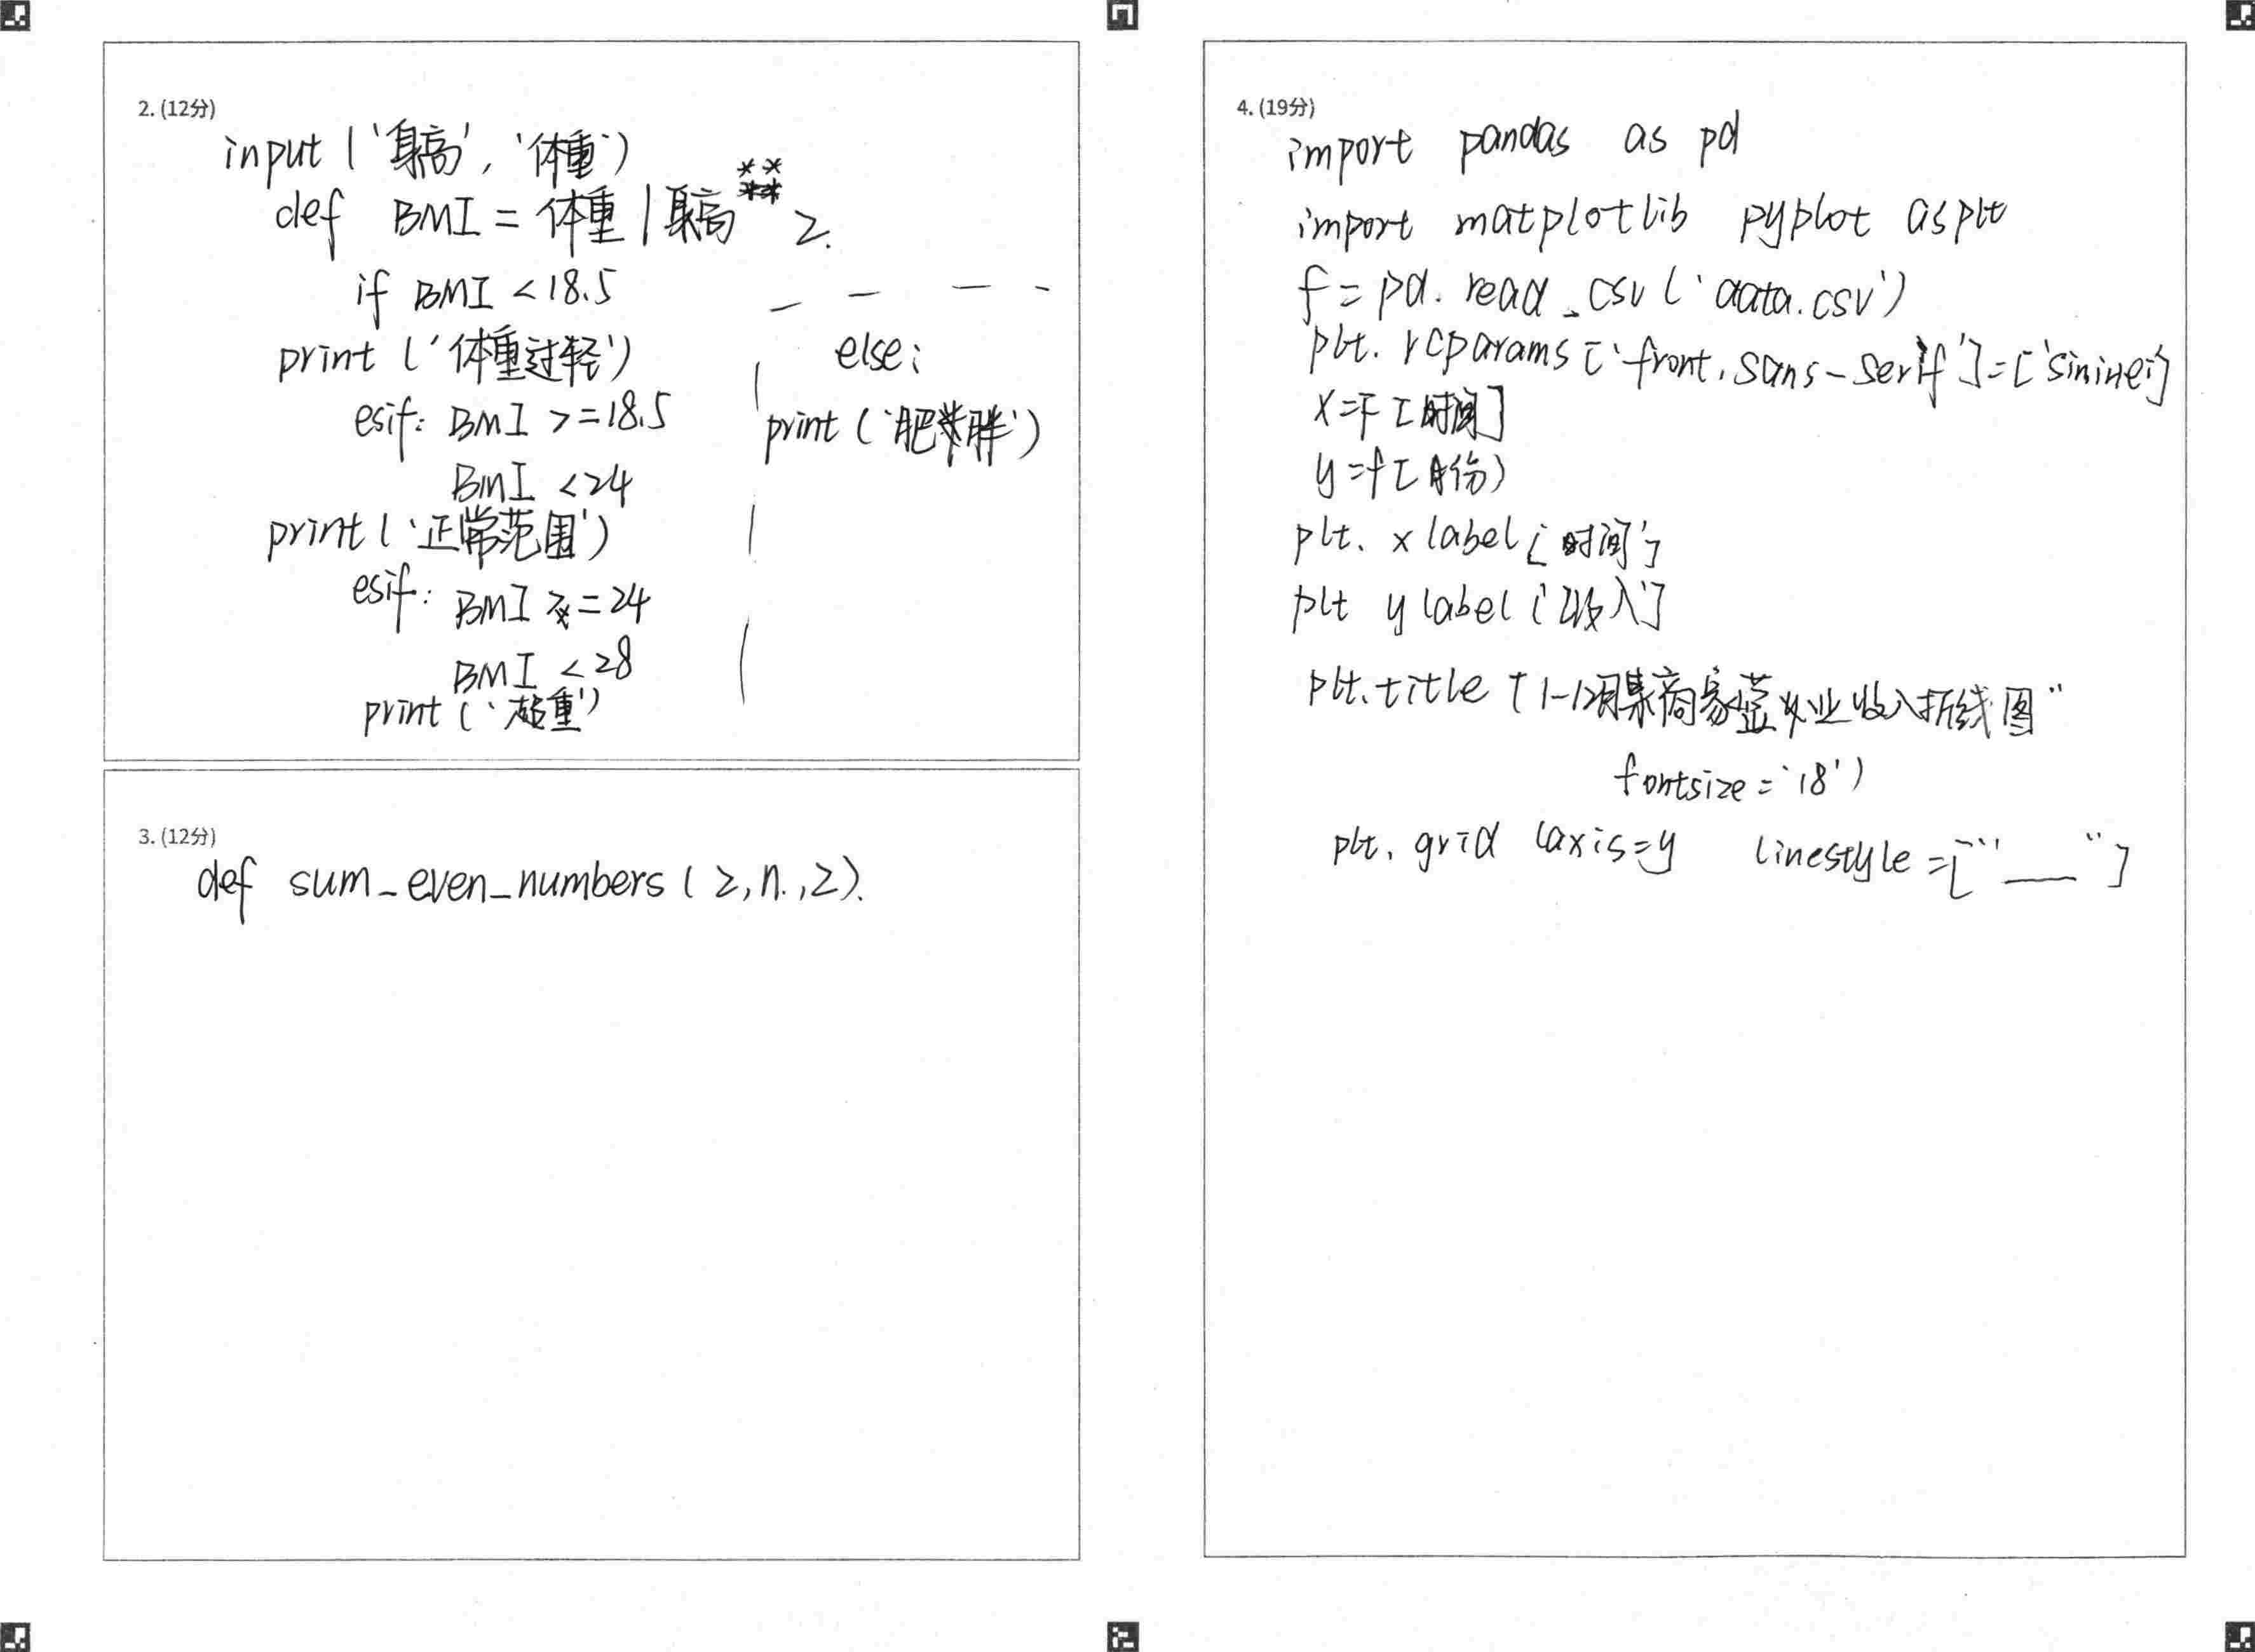 2. (12分)
input ('身高', '体重')
def BMI = 体重 / 身高 ** 2.
if BMI < 18.5
print ('体重过轻')
esif: BMI >= 18.5
BMI < 24
print ('正常范围')
esif: BMI >= 24
BMI < 28
print ('超重')
else:
print ('肥胖')
3. (12分)
def sum_even_numbers (2, n., 2).
4. (19分)
import pandas as pd
import matplotlib pyplot as plt
f = pd. read_csv ('data.csv')
plt. rcparams ['front. sans-serif'] = ['siniHei']
x = f [时间]
y = f [月份)
plt. xlabel ['时间']
plt ylabel ('收入']
plt. title ("1-12月某商家营业收入折线图"
fontsize = '18')
plt. grid (axis=y linestyle = ["__"]